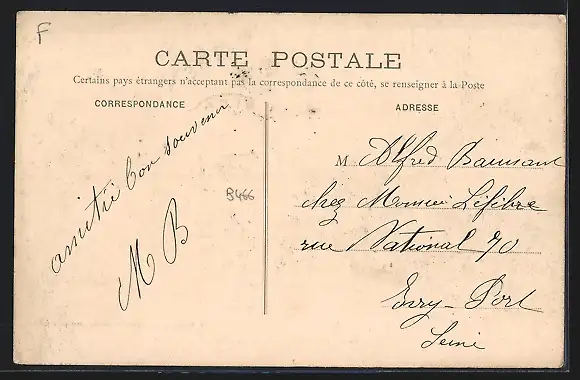 F
CARTE POSTALE
Certains pays étrangers n'acceptant pas la correspondance de ce côté, se renseigner à la Poste
CORRESPONDANCE
ADRESSE
amitié bon souvenir
M B
B466
M Alfred
chez Monsieur Léfibre
rue National 70
Ivry-Port
Seine